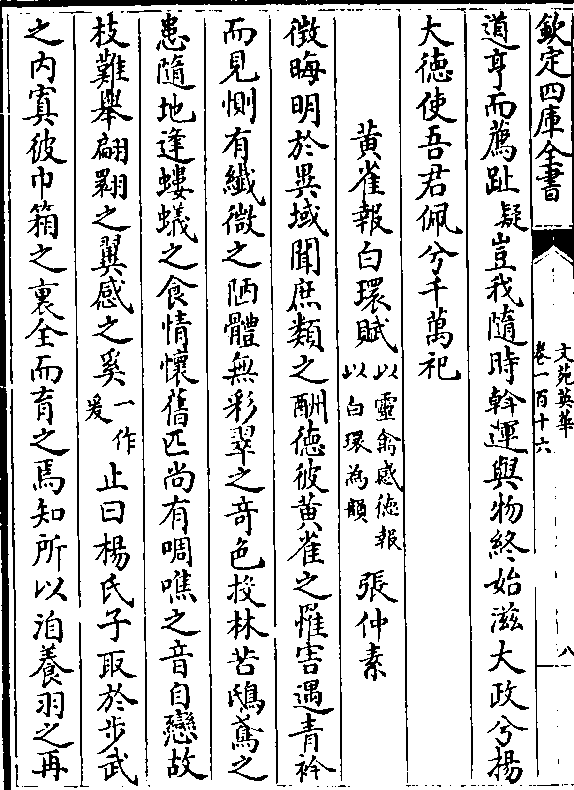 欽定四庫全書
文苑英華
卷一百十六
八
道亨而薦趾疑豈我隨時斡運與物終始滋大政兮揚
大德使吾君佩兮千萬祀
黄雀報白環賦以靈禽感德報以白環為韻 張仲素
徵晦明於異域聞庶類之酬德彼黄雀之罹害遇青衿
而見惻有纖微之陋體無彩翠之奇色投林苦鴟鳶之
患隨地逢螻蟻之食情懷舊匹尚有啁噍之音自戀故
枝難舉翩翾之翼感之奚一作爰止曰楊氏子取於步武
之内寘彼巾箱之裏全而育之焉知所以洎養羽之再